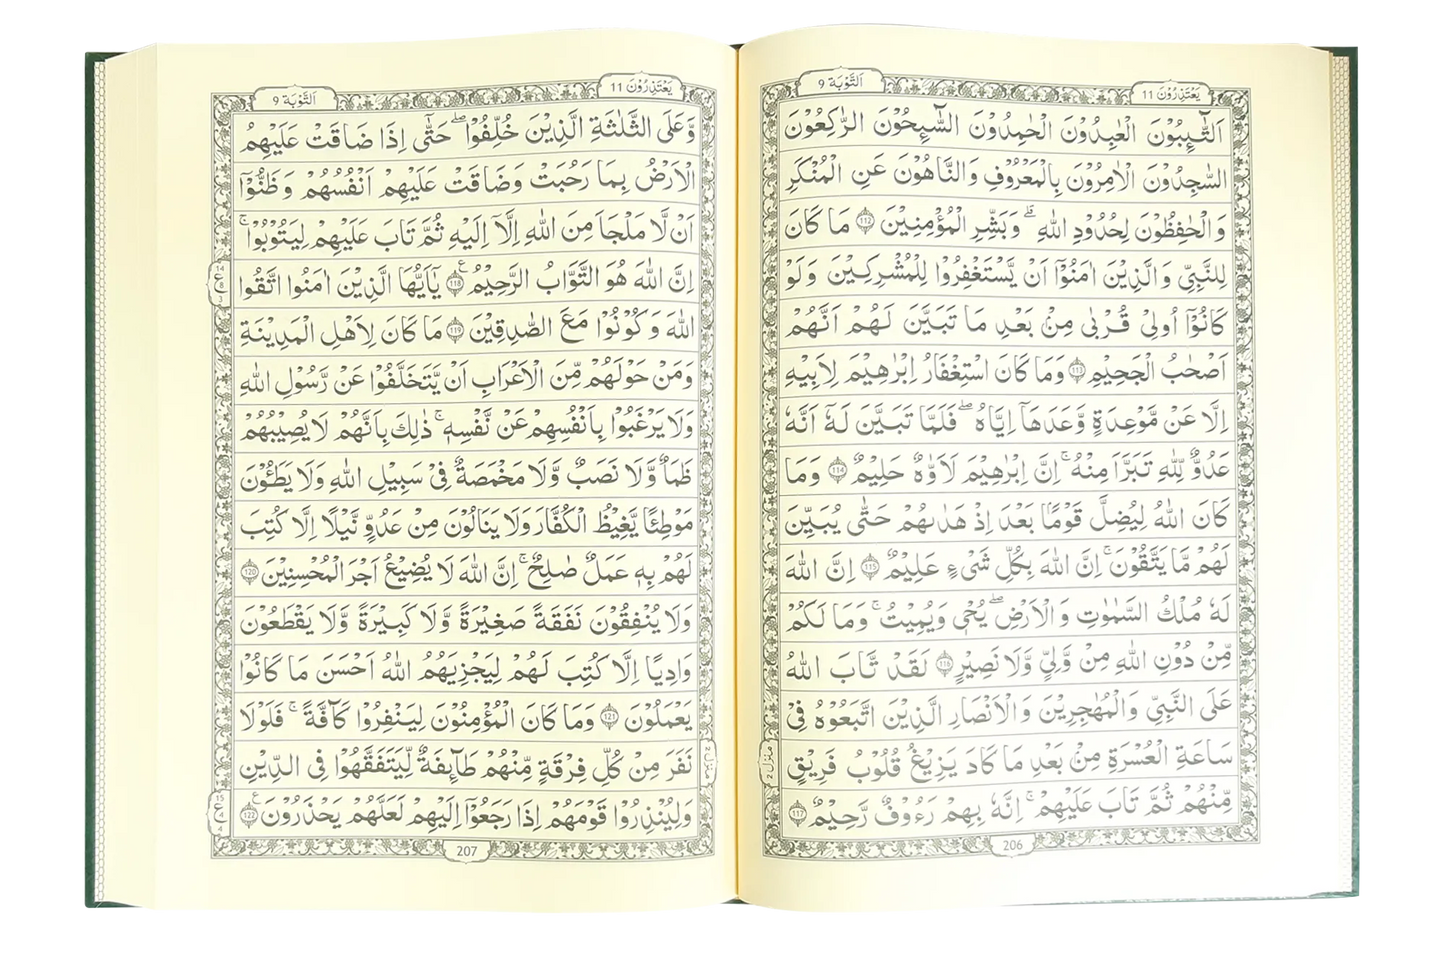 اَلتَّوْبَة 9
يَعْتَذِرُوْنَ 11
اَلتَّآئِبُوْنَ الْعٰبِدُوْنَ الْحٰمِدُوْنَ السَّآئِحُوْنَ الرّٰكِعُوْنَ
السّٰجِدُوْنَ الْاٰمِرُوْنَ بِالْمَعْرُوْفِ وَالنَّاهُوْنَ عَنِ الْمُنْكَرِ
وَالْحٰفِظُوْنَ لِحُدُوْدِ اللّٰهِ ؕ وَبَشِّرِ الْمُؤْمِنِيْنَ 112 مَا كَانَ
لِلنَّبِيِّ وَالَّذِيْنَ اٰمَنُوْۤا اَنْ يَّسْتَغْفِرُوْا لِلْمُشْرِكِيْنَ وَلَوْ
كَانُوْۤا اُولِيْ قُرْبٰى مِنْۢ بَعْدِ مَا تَبَيَّنَ لَهُمْ اَنَّهُمْ
اَصْحٰبُ الْجَحِيْمِ 113 وَمَا كَانَ اسْتِغْفَارُ اِبْرٰهِيْمَ لِاَبِيْهِ
اِلَّا عَنْ مَّوْعِدَةٍ وَّعَدَهَاۤ اِيَّاهُ ۖ فَلَمَّا تَبَيَّنَ لَهٗۤ اَنَّهٗ
عَدُوٌّ لِّلّٰهِ تَبَرَّاَ مِنْهُ ۚ اِنَّ اِبْرٰهِيْمَ لَاَوَّاهٌ حَلِيْمٌ 114 وَمَا
كَانَ اللّٰهُ لِيُضِلَّ قَوْمًاۢ بَعْدَ اِذْ هَدٰىهُمْ حَتّٰى يُبَيِّنَ
لَهُمْ مَّا يَتَّقُوْنَ ۚ اِنَّ اللّٰهَ بِكُلِّ شَيْءٍ عَلِيْمٌ 115 اِنَّ اللّٰهَ
لَهٗ مُلْكُ السَّمٰوٰتِ وَالْاَرْضِ ۖ يُحْيٖ وَيُمِيْتُ ۚ وَمَا لَكُمْ
مِّنْ دُوْنِ اللّٰهِ مِنْ وَّلِيٍّ وَّلَا نَصِيْرٍ 116 لَقَدْ تَّابَ اللّٰهُ
عَلَى النَّبِيِّ وَالْمُهٰجِرِيْنَ وَالْاَنْصَارِ الَّذِيْنَ اتَّبَعُوْهُ فِيْ
سَاعَةِ الْعُسْرَةِ مِنْۢ بَعْدِ مَا كَادَ يَزِيْغُ قُلُوْبُ فَرِيْقٍ
مِّنْهُمْ ثُمَّ تَابَ عَلَيْهِمْ ۚ اِنَّهٗ بِهِمْ رَءُوْفٌ رَّحِيْمٌ 117
منزل 2
206
اَلتَّوْبَة 9
يَعْتَذِرُوْنَ 11
وَّعَلَى الثَّلٰثَةِ الَّذِيْنَ خُلِّفُوْا ۖ حَتّٰۤى اِذَا ضَاقَتْ عَلَيْهِمُ
الْاَرْضُ بِمَا رَحُبَتْ وَضَاقَتْ عَلَيْهِمْ اَنْفُسُهُمْ وَظَنُّوْۤا
اَنْ لَّا مَلْجَاَ مِنَ اللّٰهِ اِلَّاۤ اِلَيْهِ ثُمَّ تَابَ عَلَيْهِمْ لِيَتُوْبُوْا ۚ
اِنَّ اللّٰهَ هُوَ التَّوَّابُ الرَّحِيْمُ 118 يٰۤاَيُّهَا الَّذِيْنَ اٰمَنُوا اتَّقُوا
اللّٰهَ وَكُوْنُوْا مَعَ الصّٰدِقِيْنَ 119 مَا كَانَ لِاَهْلِ الْمَدِيْنَةِ
وَمَنْ حَوْلَهُمْ مِّنَ الْاَعْرَابِ اَنْ يَّتَخَلَّفُوْا عَنْ رَّسُوْلِ اللّٰهِ
وَلَا يَرْغَبُوْا بِاَنْفُسِهِمْ عَنْ نَّفْسِهٖ ۚ ذٰلِكَ بِاَنَّهُمْ لَا يُصِيْبُهُمْ
ظَمَاٌ وَّلَا نَصَبٌ وَّلَا مَخْمَصَةٌ فِيْ سَبِيْلِ اللّٰهِ وَلَا يَطَـُٔوْنَ
مَوْطِئًا يَّغِيْظُ الْكُفَّارَ وَلَا يَنَالُوْنَ مِنْ عَدُوٍّ نَّيْلًا اِلَّا كُتِبَ
لَهُمْ بِهٖ عَمَلٌ صٰلِحٌ ۚ اِنَّ اللّٰهَ لَا يُضِيْعُ اَجْرَ الْمُحْسِنِيْنَ 120
وَلَا يُنْفِقُوْنَ نَفَقَةً صَغِيْرَةً وَّلَا كَبِيْرَةً وَّلَا يَقْطَعُوْنَ
وَادِيًا اِلَّا كُتِبَ لَهُمْ لِيَجْزِيَهُمُ اللّٰهُ اَحْسَنَ مَا كَانُوْا
يَعْمَلُوْنَ 121 وَمَا كَانَ الْمُؤْمِنُوْنَ لِيَنْفِرُوْا كَآفَّةً ۚ فَلَوْلَا
نَفَرَ مِنْ كُلِّ فِرْقَةٍ مِّنْهُمْ طَآئِفَةٌ لِّيَتَفَقَّهُوْا فِي الدِّيْنِ
وَلِيُنْذِرُوْا قَوْمَهُمْ اِذَا رَجَعُوْۤا اِلَيْهِمْ لَعَلَّهُمْ يَحْذَرُوْنَ 122
14
ع
8
3
15
ع
4
4
منزل 2
207